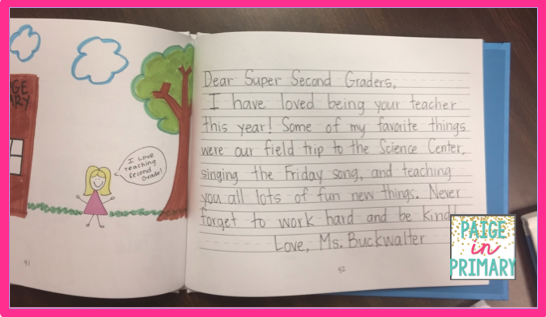 GE
ARY
I Love
teaching
Second
Grade!
41
Dear Super Second Graders,
I have loved being your teacher
this year! Some of my favorite things
were our field trip to the Science Center,
singing the Friday song, and teaching
you all lots of fun new things. Never
forget to work hard and be kind!
Love, Ms. Buckwalter
42
PAIGE
in
PRIMARY